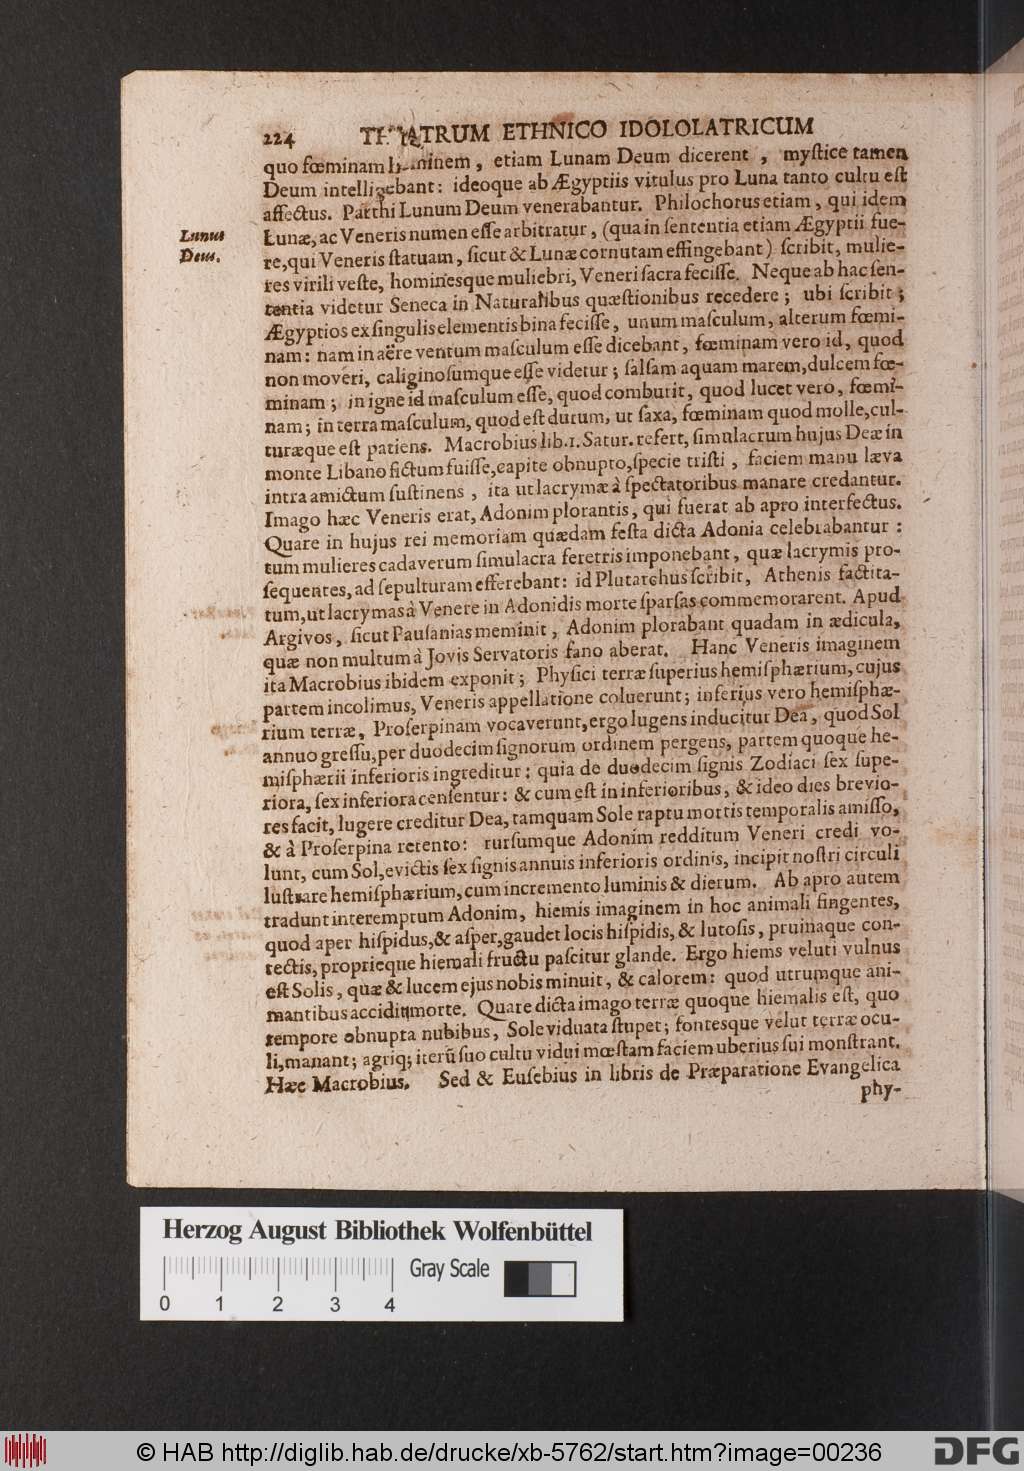 224 THEATRUM ETHNICO IDOLOLATRICUM
quo fœminam hominem, etiam Lunam Deum dicerent, myſtice tamen
Deum intelligebant: ideoque ab Ægyptiis vitulus pro Luna tanto cultu eſt
affectus. Parthi Lunum Deum venerabantur. Philochorus etiam, qui idem
Lunus
Deus.
Lunæ, ac Veneris numen eſſe arbitratur, (qua in ſententia etiam Ægyptii fue-
re, qui Veneris ſtatuam, ſicut & Lunæ cornutam effingebant) ſcribit, mulie-
res virili veſte, hominesque muliebri, Veneri ſacra feciſſe. Neque ab hac ſen-
tentia videtur Seneca in Naturalibus quæſtionibus recedere; ubi ſcribit;
Ægyptios ex ſingulis elementis bina feciſſe, unum maſculum, alterum fœmi-
nam: nam in aëre ventum maſculum eſſe dicebant, fœminam vero id, quod
non moveri, caliginoſumque eſſe videtur; ſalſam aquam marem, dulcem fœ-
minam; in igne id maſculum eſſe, quod comburit, quod lucet vero, fœmi-
nam; in terra maſculum, quod eſt durum, ut ſaxa, fœminam quod molle, cul-
turæque eſt patiens. Macrobius lib. 1. Satur. refert, ſimulacrum hujus Deæ in
monte Libano fictum fuiſſe, capite obnupto, ſpecie triſti, faciem manu læva
intra amictum ſuſtinens, ita ut lacrymæ à ſpectatoribus manare credantur.
Imago hæc Veneris erat, Adonim plorantis, qui fuerat ab apro interfectus.
Quare in hujus rei memoriam quædam feſta dicta Adonia celebrabantur:
tum mulieres cadaverum ſimulacra feretris imponebant, quæ lacrymis pro-
ſequentes, ad ſepulturam efferebant: id Plutarchus ſcribit, Athenis factita-
tum, ut lacrymas à Venere in Adonidis morte ſparſas commemorarent. Apud
Argivos, ſicut Pauſanias meminit, Adonim plorabant quadam in ædicula,
quæ non multum à Jovis Servatoris fano aberat. Hanc Veneris imaginem
ita Macrobius ibidem exponit; Phyſici terræ ſuperius hemiſphærium, cujus
partem incolimus, Veneris appellatione coluerunt; inferius vero hemiſphæ-
rium terræ, Proſerpinam vocaverunt, ergo lugens inducitur Dea, quod Sol
annuo greſſu, per duodecim ſignorum ordinem pergens, partem quoque he-
miſphærii inferioris ingreditur: quia de duodecim ſignis Zodiaci ſex ſupe-
riora, ſex inferiora cenſentur: & cum eſt in inferioribus, & ideo dies brevio-
res facit, lugere creditur Dea, tamquam Sole raptu mortis temporalis amiſſo,
& à Proſerpina retento: rurſumque Adonim redditum Veneri credi vo-
lunt, cum Sol, evictis ſex ſignis annuis inferioris ordinis, incipit noſtri circuli
luſtrare hemiſphærium, cum incremento luminis & dierum. Ab apro autem
tradunt interemptum Adonim, hiemis imaginem in hoc animali fingentes,
quod aper hiſpidus, & aſper, gaudet locis hiſpidis, & lutoſis, pruinaque con-
tectis, proprieque hiemali fructu paſcitur glande. Ergo hiems veluti vulnus
eſt Solis, quæ & lucem ejus nobis minuit, & calorem: quod utrumque ani-
mantibus accidit morte. Quare dicta imago terræ quoque hiemalis eſt, quo
tempore obnupta nubibus, Sole viduata ſtupet; fontesque velut terræ ocu-
li, manant; agriq; iterũ ſuo cultu vidui mœſtam faciem uberius ſui monſtrant.
Hæc Macrobius. Sed & Euſebius in libris de Præparatione Evangelica
phy-
Herzog August Bibliothek Wolfenbüttel
Gray Scale
0 1 2 3 4
© HAB http://diglib.hab.de/drucke/xb-5762/start.htm?image=00236
DFG